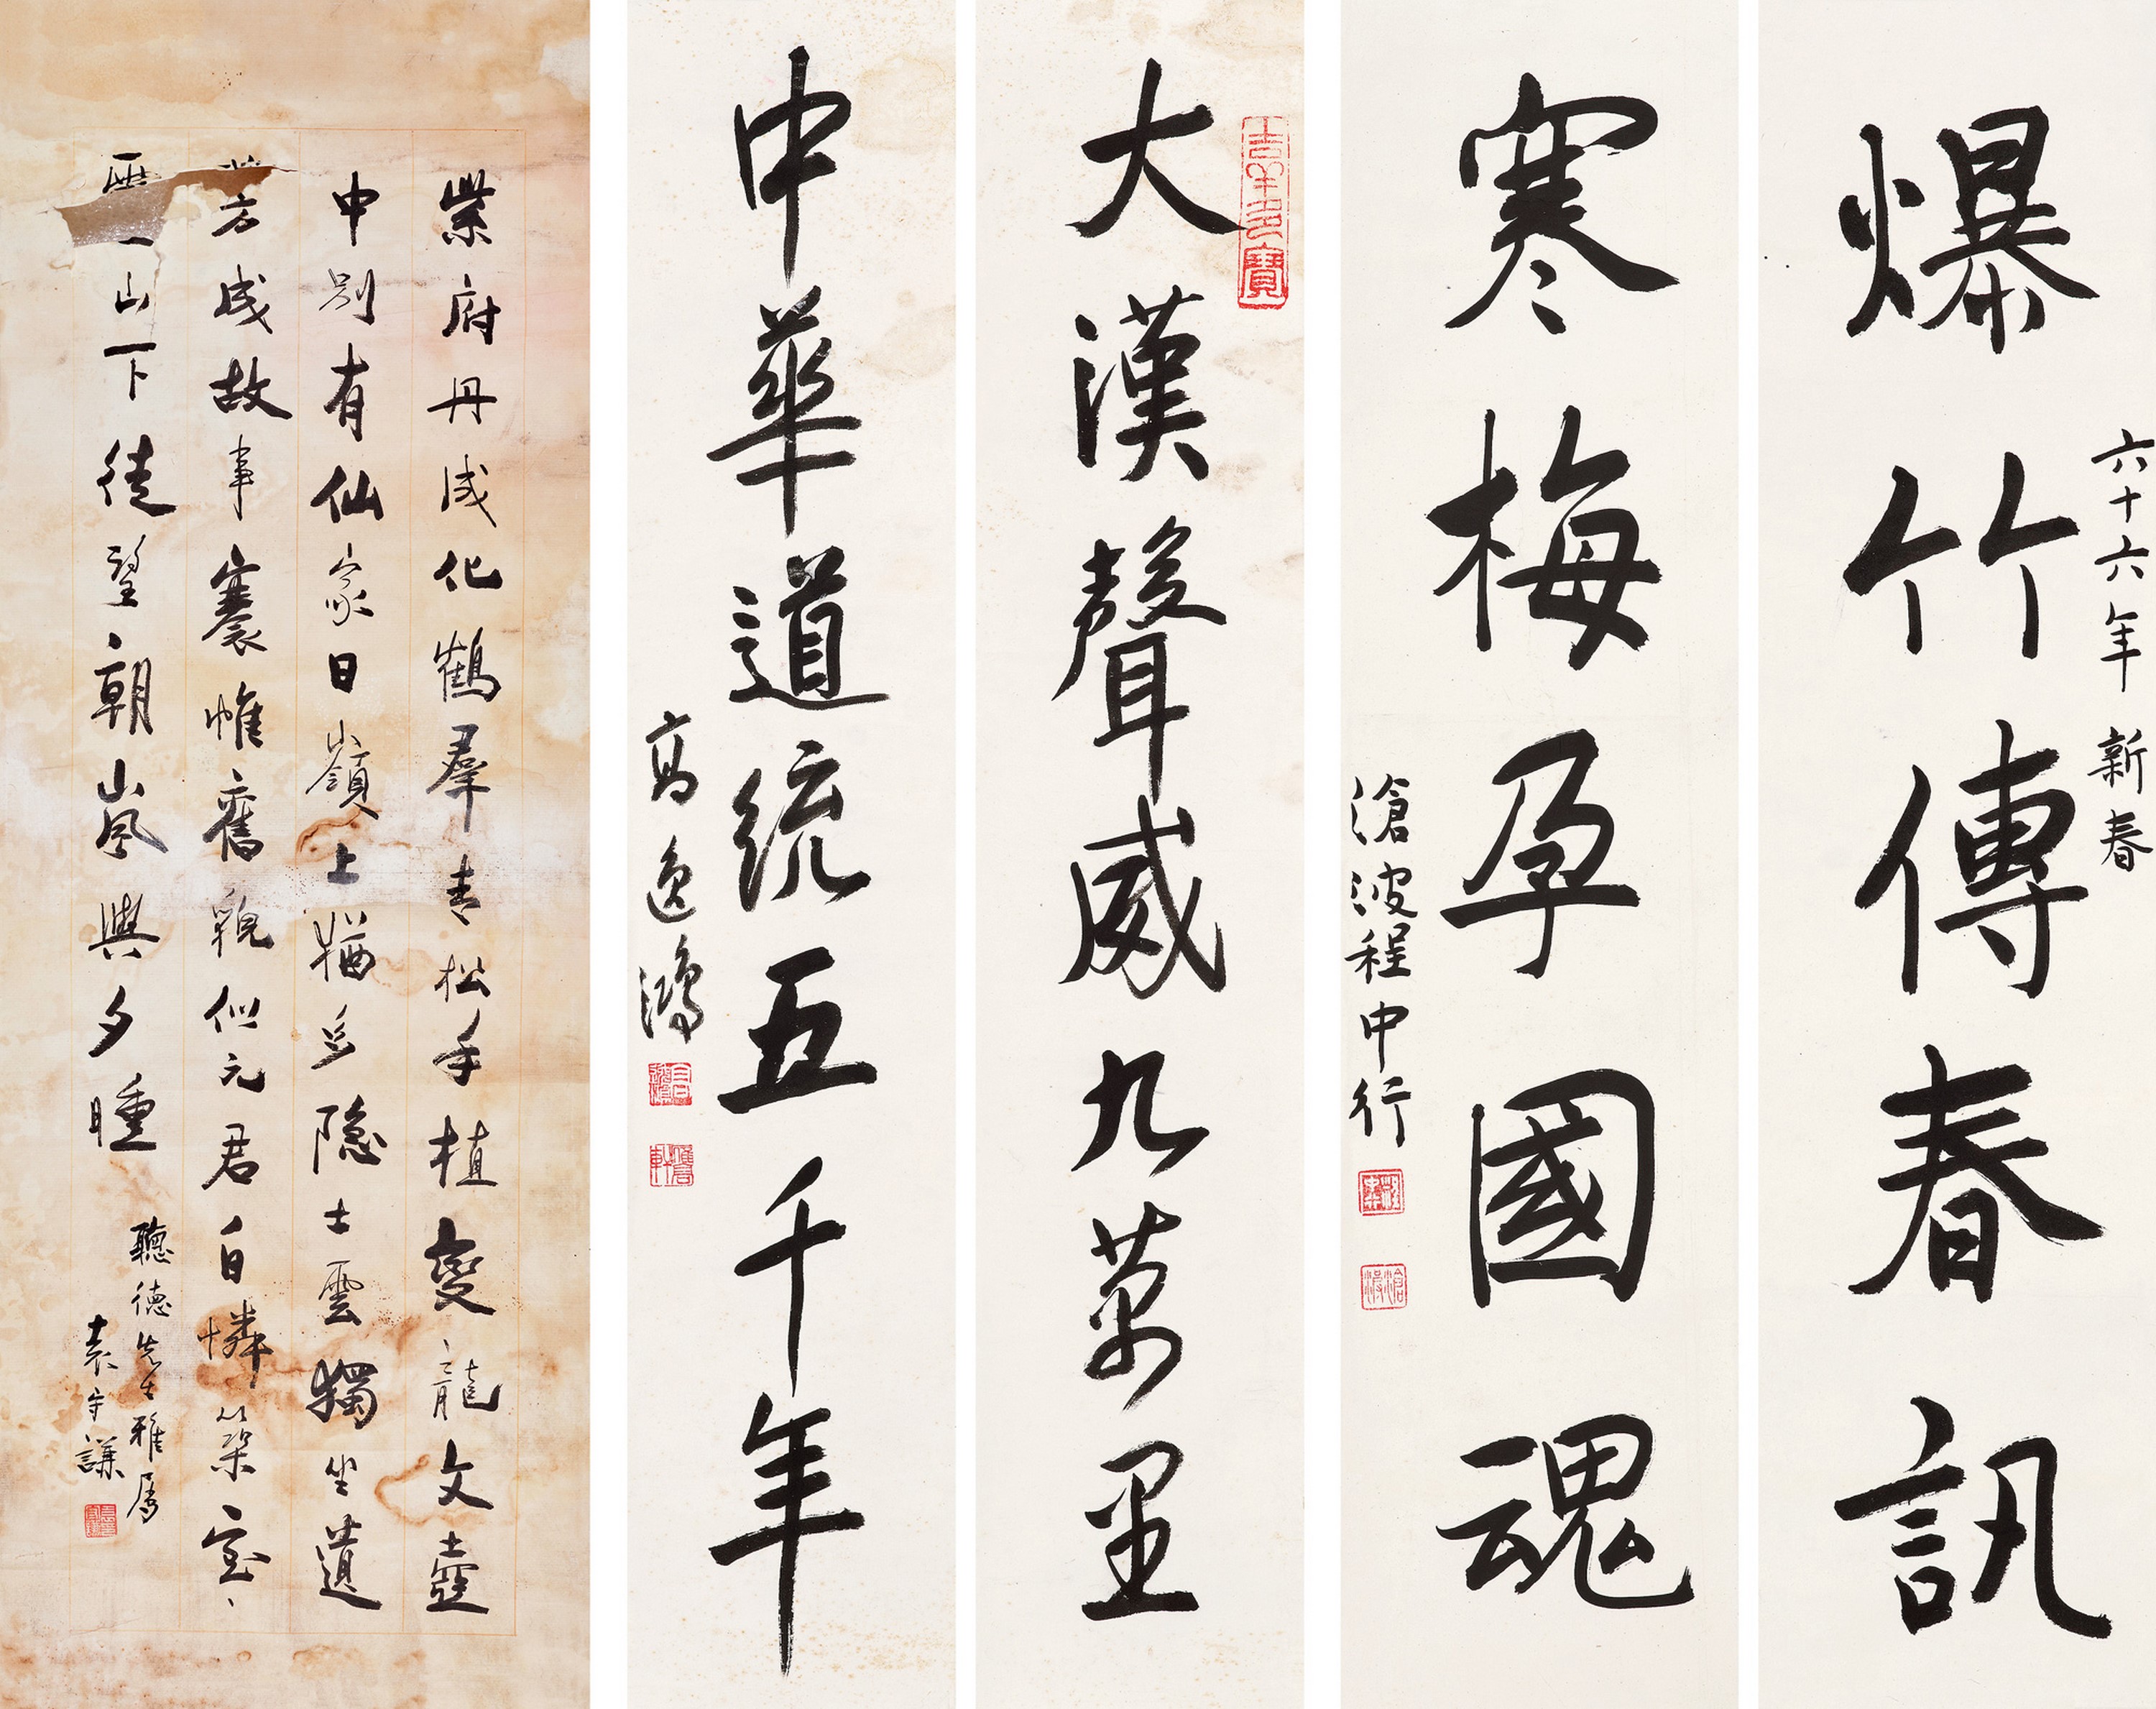 六十六年新春
爆竹傳春訊
寒梅孕國魂
滄波程中行
大漢聲威九萬里
中華道統五千年
高逸鴻
紫府丹成化鶴羣青松手植變龍文壺
中別有仙家日嶺上猶多隱士雲獨坐遺
芳成故事褰帷舊貌似元君自憐築室
靈山下徒望朝嵐與夕曛
聽德先生雅屬
袁守謙